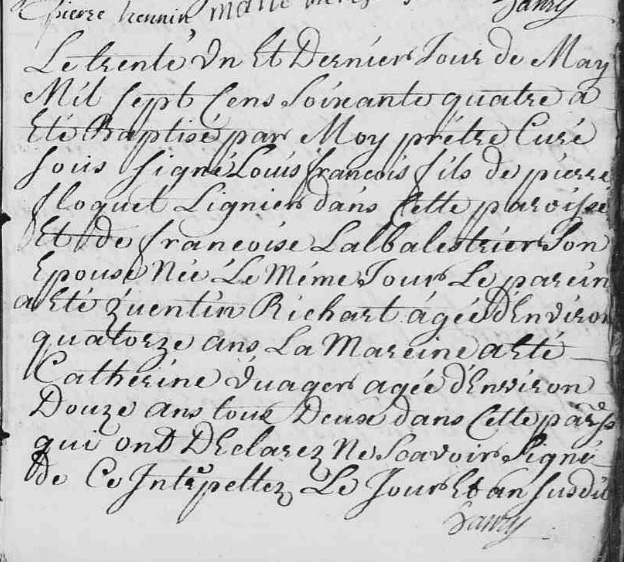 pierre hennin marie
Le trente Un Et Dernier Jour de May
Mil Sept Cens Soixante quatre a
Eté Baptisé par Moy prétre Curé
sous signé Louis francois fils de pierre
floquet Lignier dans Cette paroisse
Et de francoise Lalbalestrier Son
Epouse Née Le Méme Jour Le parein
a Eté Quentin Richart ágée d'Environ
quatorze ans La Mareine a eté
Catherine Vuager agée d'Environ
Douze ans tous Deux dans Cette parss
qui ont Déclarez Ne Scavoir Signé
de Ce Interpellez Le Jour Et an susdit